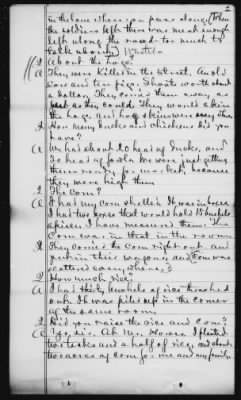 2
in the lane where you pass along. (When
the soldiers left there was meat enough
left along the road too much to
talk about)
Q About the hogs?
A They were killed in the street. An old
sow and ten pigs. Shoats worth about
a dollar. They carried them away as
best as they could. They would skin
the hogs, and hog skins were every
Q How many ducks and chickens did you
have?
A We had about 20 head of ducks, and
30 head of fowls. We were just getting
them ready for market, because
they were high then
Q The Corn?
A I had my corn shelled. It was in boxes
I had two boxes that would hold 15 bushels
apiece. I have measured them. The
Corn was in that in the room
They carried the corn right out, and
put in their wagons, and Corn was
scattered everywhere.
Q How much rice?
A I had thirty bushels of rice thrashed
out. It was piled up in the corner
of the same room.
Q Did you raise the rice and corn?
A Yes, sir. At Mr. I planted
two tasks and a half of rice, and about
two acres of corn for me and my family.